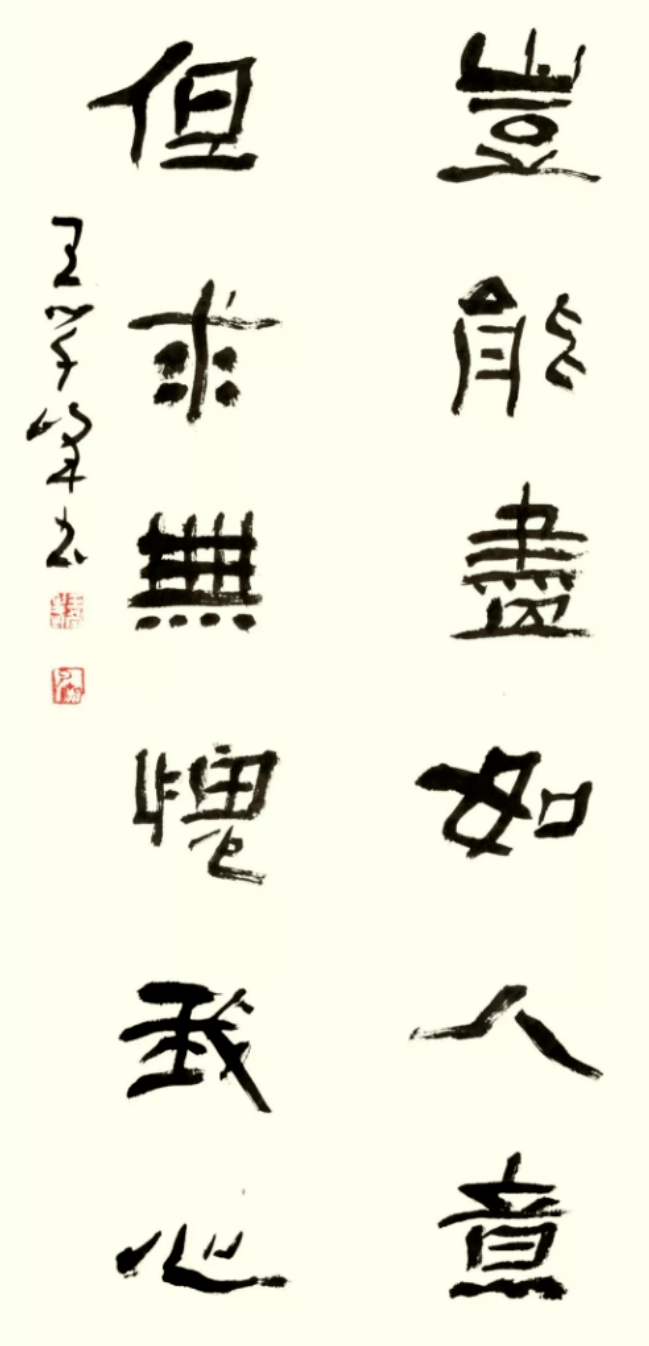 豈能盡如人意
但求無愧我心
王學峰书